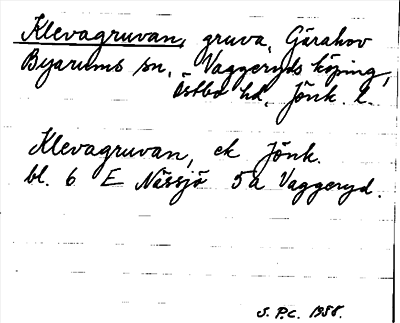 Klevagruvan, gruva, Gärahov
Byarums sn, Vaggeryds köping,
Östbo hd, Jönk. l.
Klevagruvan, ek Jönk.
bl. 6 E Nässjö 5a Vaggeryd.
S. P.C. 1958.